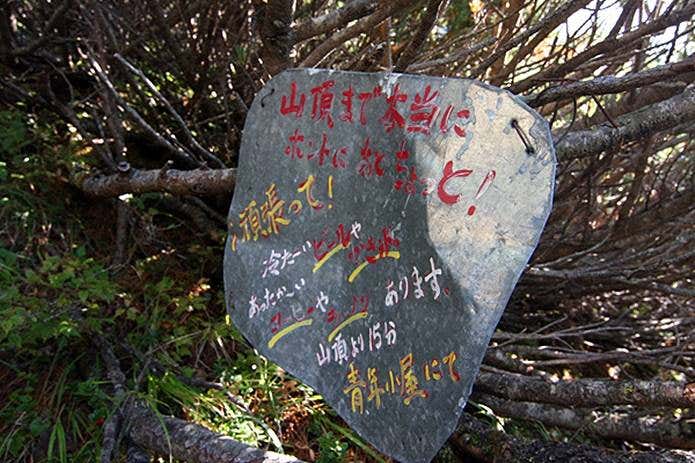 山頂まで本当に
ホントに あと ちょっと!
頑張って!
冷た〜い ビールや かき氷
あったか〜い
コーヒーや あります。
山頂より15分
青年小屋にて